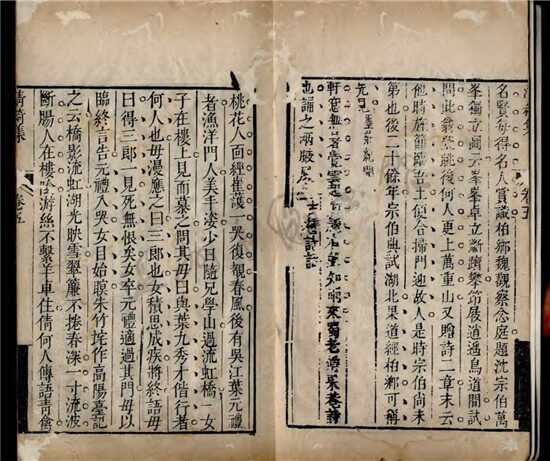 名賢每得名人賞識柏鄉魏觀察念庭題沈宗伯萬
峯獨立圖云峯峯卓立斷躋攀節展逍遙鳥道間試
問此翁登眺後何人更上萬重山又贈詩二章末云
他時盾節臨吾土使合掃門迎故人是時宗伯尚未
第也後二十餘年宗伯典試湖北果道經柏鄉可稱
先見
桃花人面經崔護一哭復觀春風後有吳江葉元禮
者漁洋門人美丰姿少日隨兄學山過流虹橋一女
子在樓上見而慕之問其母曰與葉九秀才偕行者
何人也母漫應之曰三郎也女積思成疾將終語母
曰得三郎一見死無恨矣女卒元禮適過其門母以
臨終言告元禮入哭女目始瞑朱竹垞作高陽臺記
之云橋影流虹湖光映雪翠簾不捲春深一寸流波
斷腸人在樓陰游絲不繫羊車住倩何人傳語青禽